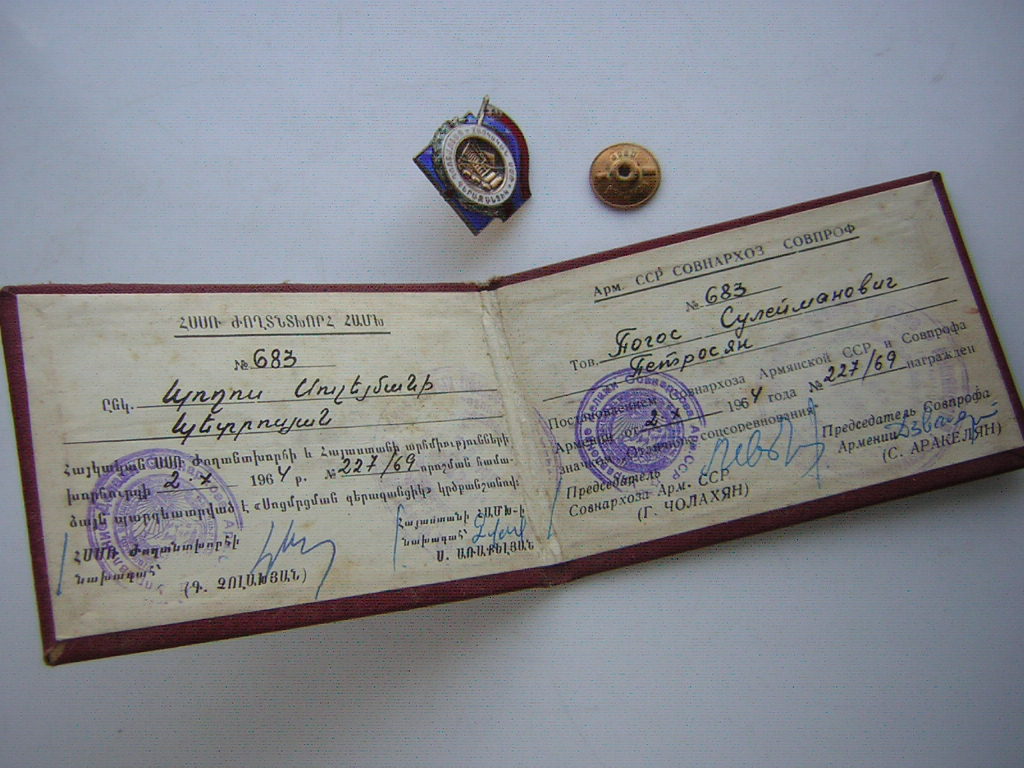 ՀՍՍՌ ԺՈՂՏՆՏԽՈՐՀ ՀԱՄԽ
№ 683
Ընկ. Պողոս Սուլեյմանի
Պետրոսյան
Հայկական ՍՍՌ Ժողտնտխորհի և Հայաստանի արհմիությունների
խորհուրդի 2.X 1964 թ. № 227/69 որոշման համա-
ձայն պարգևատրված է «Սոցմրցման գերազանցիկ» կրծքանշանով:
ՀՍՍՌ Ժողտնտխորհի
նախագահ՝
(Գ. ՉՈԼԱԽՅԱՆ)
Հայաստանի ՀԱՄԽ-ի
նախագահ՝
Ս. ԱՌԱՔԵԼՅԱՆ
Арм. ССР СОВНАРХОЗ СОВПРОФ
№ 683
Тов. Погос Сулейманович
Петросян
Постановлением Совнархоза Армянской ССР и Совпрофа
Армении от 2.X 1964 года № 227/69 награжден
значком Отличник соцсоревнования
Председатель
Совнархоза Арм. ССР
(Г. ЧОЛАХЯН)
Председатель Совпрофа
Армении
(С. АРАКЕЛЯН)